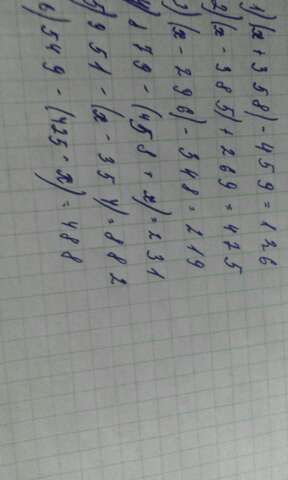 1) (x + 358) - 459 = 126
2) (x - 385) + 269 = 475
3) (x - 296) - 348 = 219
4) 879 - (458 + x) = 231
5) 951 - (x - 354) = 882
6) 549 - (425 - x) = 488